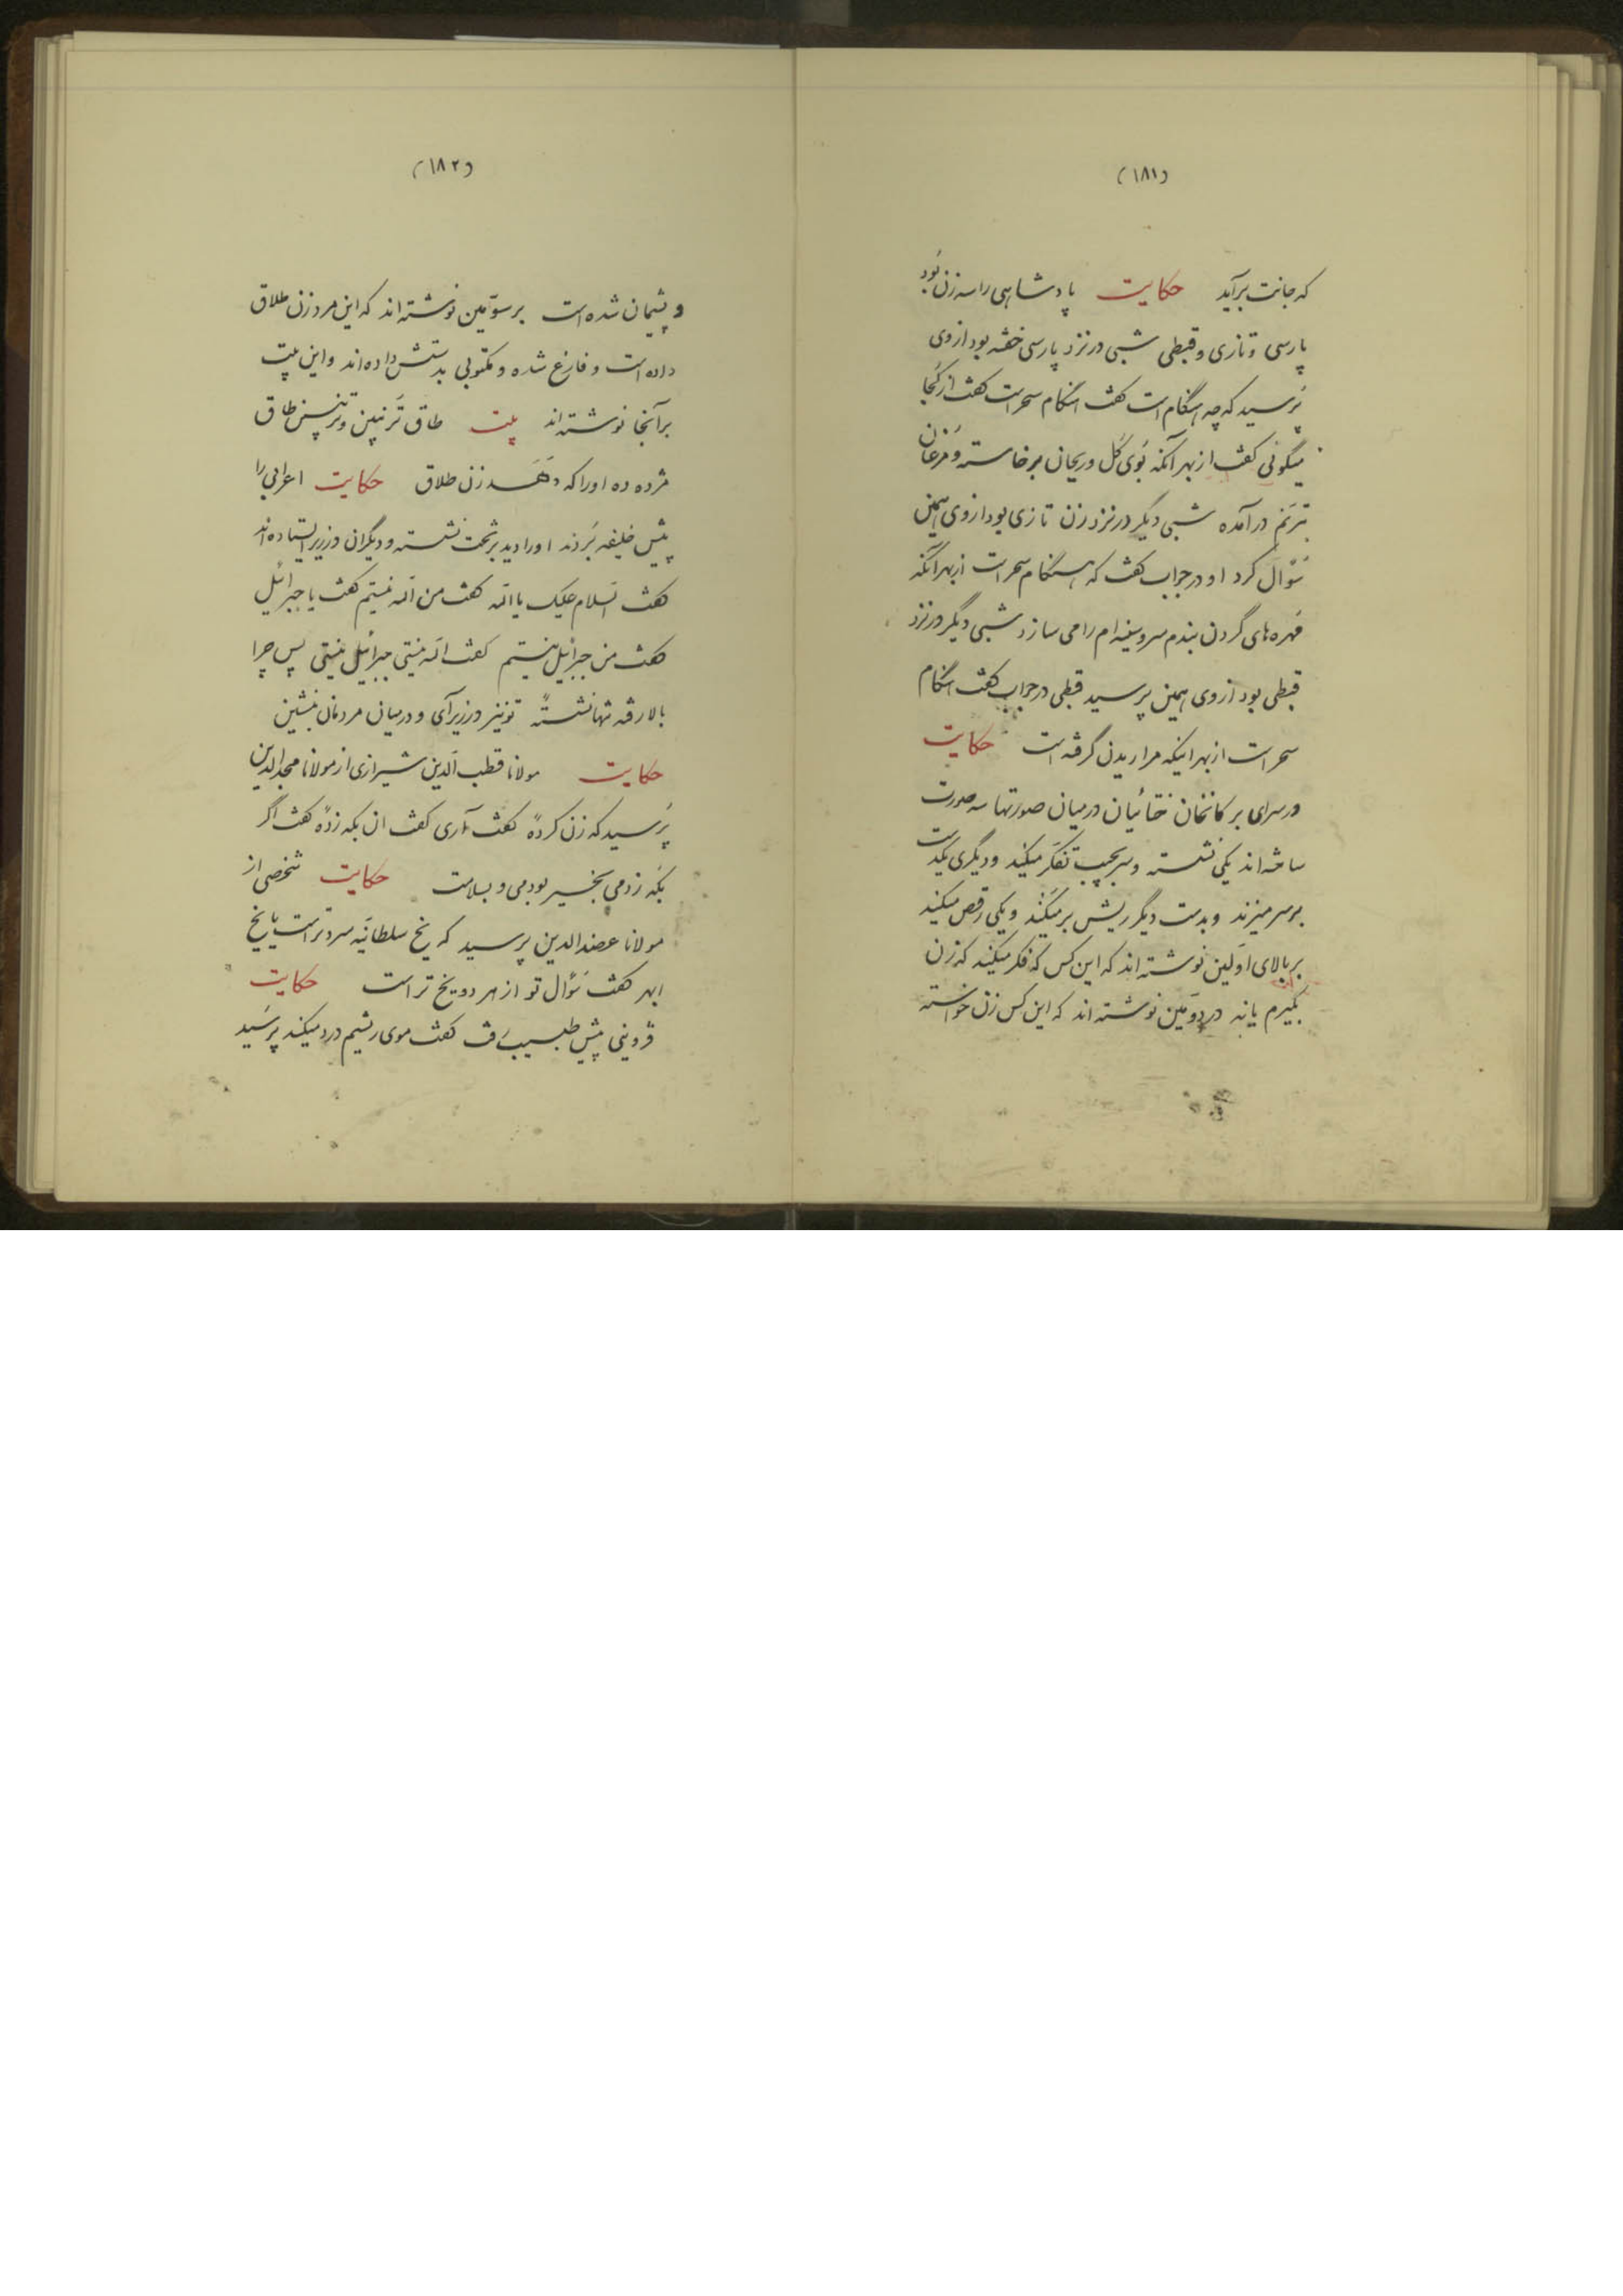 (۱۸۱)
که جانت برآید حکایت پادشاهی را سه زن بُود
پارسی و تازی و قبطی شبی در نزد پارسی خفته بود از وی
پُرسید که چه هنگام است گفت هنگام سحر است گفت از کُجا
میگوئی گفت از بهر آنکه بُوی گُل و ریحان برخاسته و مُرغان
بترنّم درآمده شبی دیگر در نزد زن تازی بود از وی همین
سُؤال کرد او در جواب گفت که هنگام سحر است از بهر آنکه
مُهره‌های گردن بندم سرد سینه‌ام را می سازد شبی دیگر در نزد
قبطی بود از وی همین پرسید قبطی در جواب گفت هنگام
سحر است از بهر اینکه مرا ریدن گرفته است حکایت
در سرای برکانخان ختائیان در میان صورتها سه صورت
ساخته‌اند یکی نشسته و سر بجیب تفکّر میکند و دیگری یکدست
بر سر میزند و بدست دیگر ریش بر میکَند و یکی رقص میکند
بر بالای اوّلین نوشته‌اند که این کس که فکر میکند که زن
بگیرم یا نه در دوّمین نوشته‌اند که این کس زن خواسته
(۱۸۲)
و پشیمان شده است بر سوّمین نوشته‌اند که این مرد زن طلاق
داده است و فارغ شده و مکتوبی بدستش داده‌اند و این بیت
بر آنجا نوشته‌اند بیت طاق تُرنبین و تُرنبین طاق
مژده ده او را که دَهَد زن طلاق حکایت اعرابی را
پیش خلیفه بُردند او را دید بر تخت نشسته و دیگران در زیر ایستاده‌اند
گفت السّلام علیک یا الله گفت من الله نیستم گفت یا جبرائیل
گفت من جبرائیل نیستم گفت الله نیستی جبرائیل نیستی پس چرا
بالا رفته تنها نشستهٔ تو نیز در زیر آی و در میان مردمان بنشین
حکایت مولانا قطب الدّین شیرازی از مولانا مجد الدین
پُرسید که زن کردهٔ گفت آری گفت ان بکه زدهٔ گفت اگر
بکه زدمی بخیر بودمی و بسلامت حکایت شخصی از
مولانا عضد الدین پرسید که یخ سلطانیّه سردتر است یا یخ
ابهر گفت سُؤال تو از هر دو یخ تر است حکایت
قزوینی پیش طبیب رفت گفت موی ریشم درد میکند پرسید